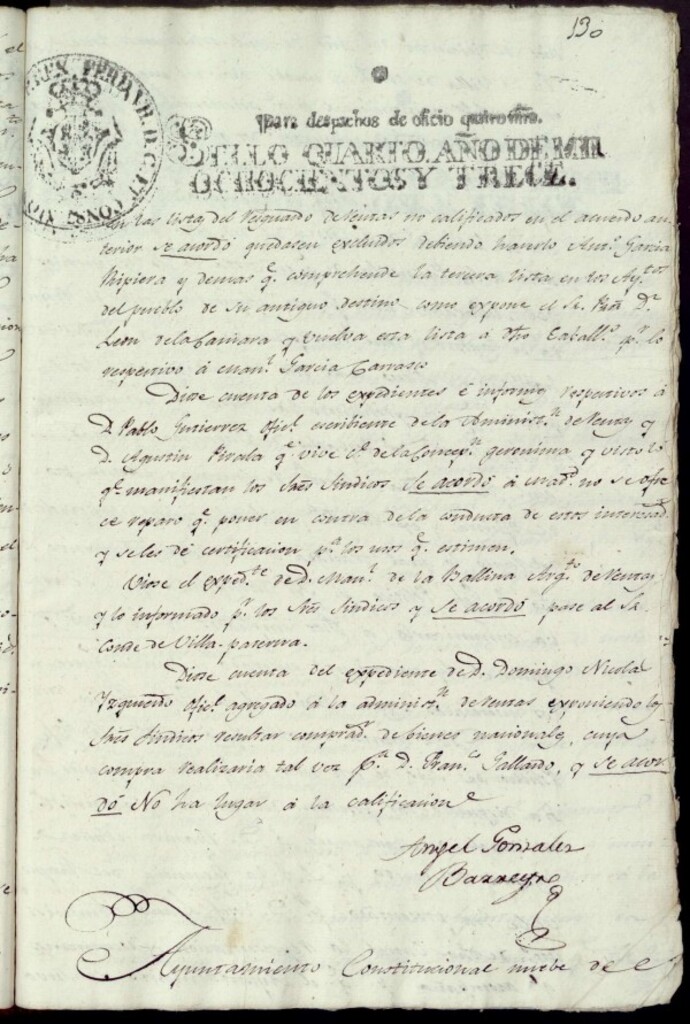 130
Para despachos de oficio quatro mrs.
SELLO QUARTO. AÑO DE MIL
OCHOCIENTOS Y TRECE.
En las listas del Resguardo de Rentas no calificados en el acuerdo an-
terior se acordó quedasen excluidos debiendo hacerlo Ant.º Garcia
y demas q.e comprehende la tercera lista en los Ay.tos
del pueblo de su antiguo destino como expone el Sr. D.n
Leon de la Camara y vuelva esta lista á dho Caball.º p.r lo
respectivo á Man.l Garcia Carrasco
Diose cuenta de los expedientes é informes respectivos á
D. Pablo Gutierrez Ofic.l escribiente de la Administ.n de Rentas y
D. Agustin Pirala q.e vive c.e de la Concep.n geronima y visto lo
q.e manifiestan los Sres Sindicos Se acordó á Mad.d no se ofre
ce reparo q.e poner en contra de la conducta de estos interesad.s
y se les dé certificacion p.a los usos q.e estimen.
Viose el exped.te de D. Man.l de la Ballina Arq.to de Rentas
y lo informado p.r los Sres Sindicos y Se acordó pase al Sr.
Conde de Villa-paterna.
Diose cuenta del expediente de D. Domingo Nicolas
Yzquierdo Ofic.l agregado á la administ.n de Rentas exponiendo los
Sres Sindicos resultar comprad.r de bienes nacionales, cuya
compra realizaria tal vez p.r D. Fran.co Gallardo, y se acor
dó No ha lugar á la calificacion
Angel Gonzalez
Barreyro
Ayuntamiento Constitucional nuebe de